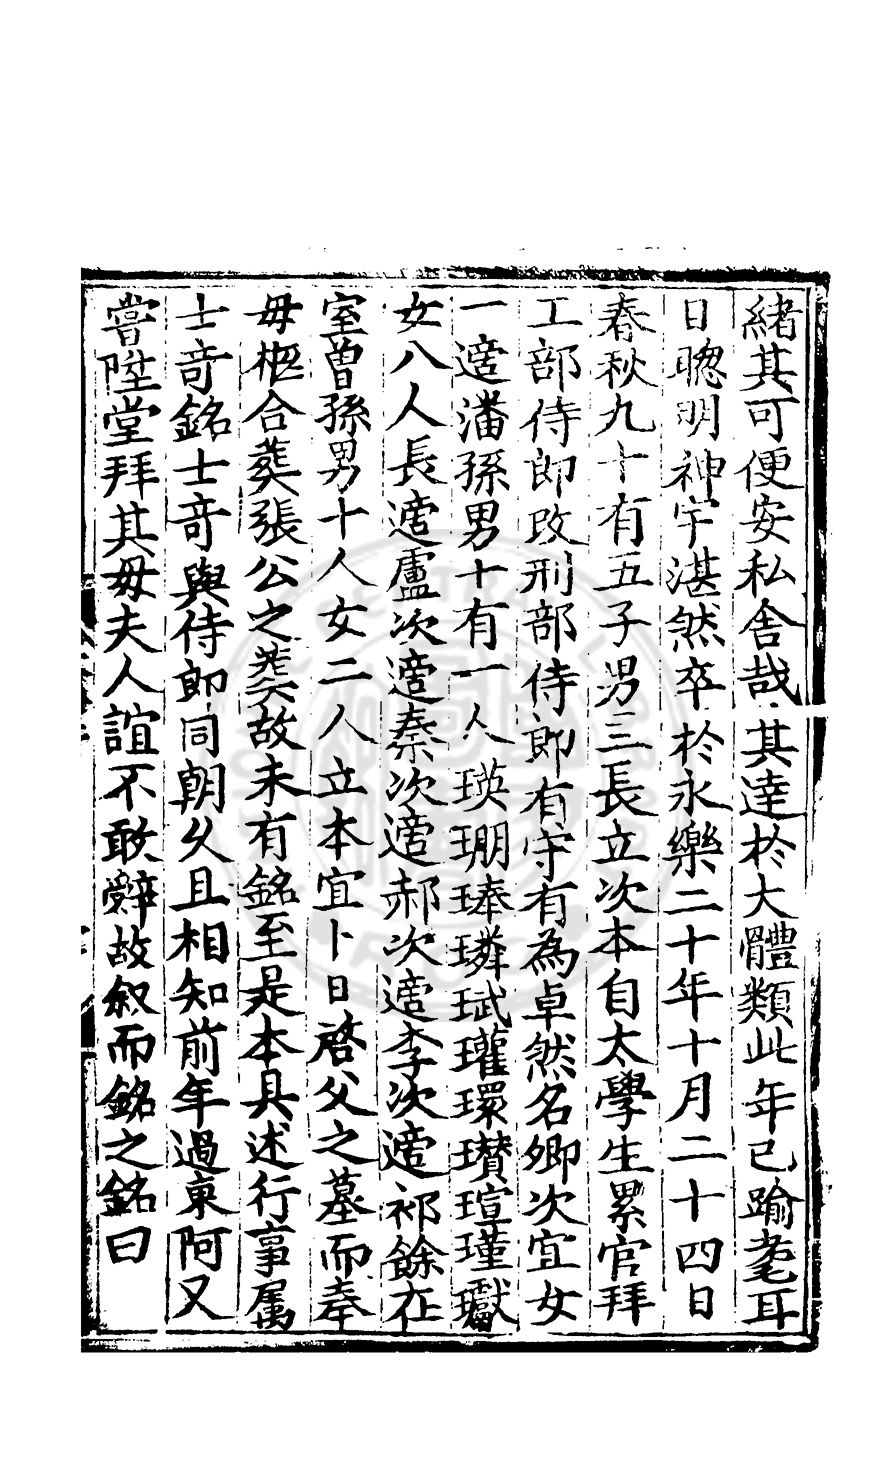 緒其可便安私舍哉其達於大體類此年已踰耄耳
目聰明神宇湛然卒於永樂二十年十月二十四日
春秋九十有五子男三長立次本自太學生累官拜
工部侍郎改刑部侍郎有守有為卓然名卿次宜女
一適潘孫男十有一人瑛珊琫璘珷瓘環瓚瑄瑾瓛
女八人長適盧次適秦次適郝次適李次適祁餘在
室曾孫男十人女二人立本宜卜日啓父之墓而奉
毋柩合葬張公之葬故未有銘至是本具述行事属
士竒銘士竒與侍郎同朝乆且相知前年過東阿又
嘗陞堂拜其毋夫人誼不敢辤故叙而銘之銘曰